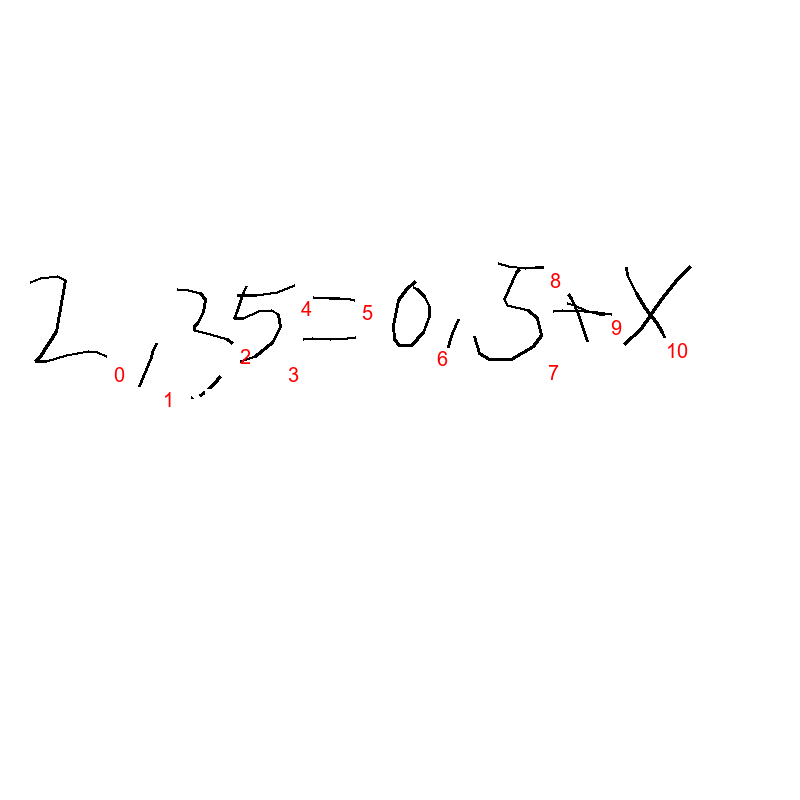 2,35=0,5+x
0 1 2 3 4 5 6 7 8 9 10